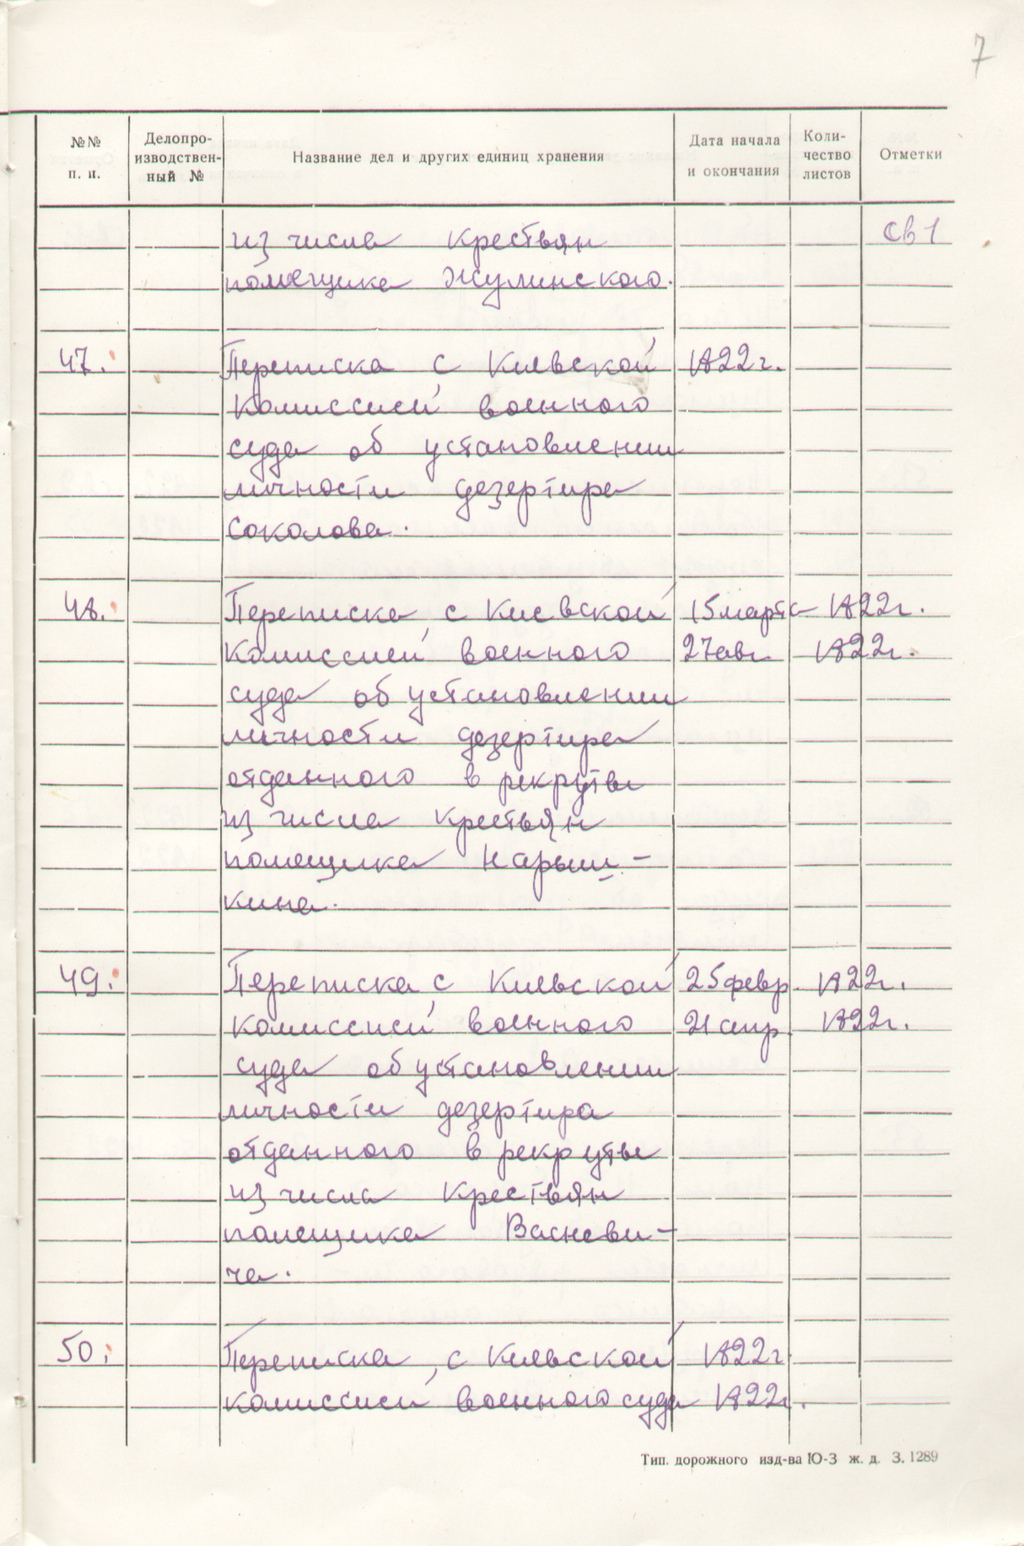 7
№№ п. п.
Делопроизводственный №
Название дел и других единиц хранения
Дата начала и окончания
Количество листов
Отметки
из числа крестьян св 1
помещика Жулинского.
47. Переписка с Киевской 1822 г.
Комиссией военного
суда об установлении
личности дезертира
Соколова.
48. Переписка с Киевской 15 марта 1822 г.
Комиссией военного 27 авг 1822 г.
суда об установлении
личности дезертира
отданного в рекруты
из числа крестьян
помещика Нарыш-
кина.
49. Переписка с Киевской 25 февр. 1822 г.
Комиссией военного 21 апр. 1822 г.
суда об установлении
личности дезертира
отданного в рекруты
из числа крестьян
помещика Васневи-
ча.
50. Переписка с Киевской 1822 г
Комиссией военного суда 1822 г.
Тип. дорожного изд-ва Ю-З ж. д. З. 1289